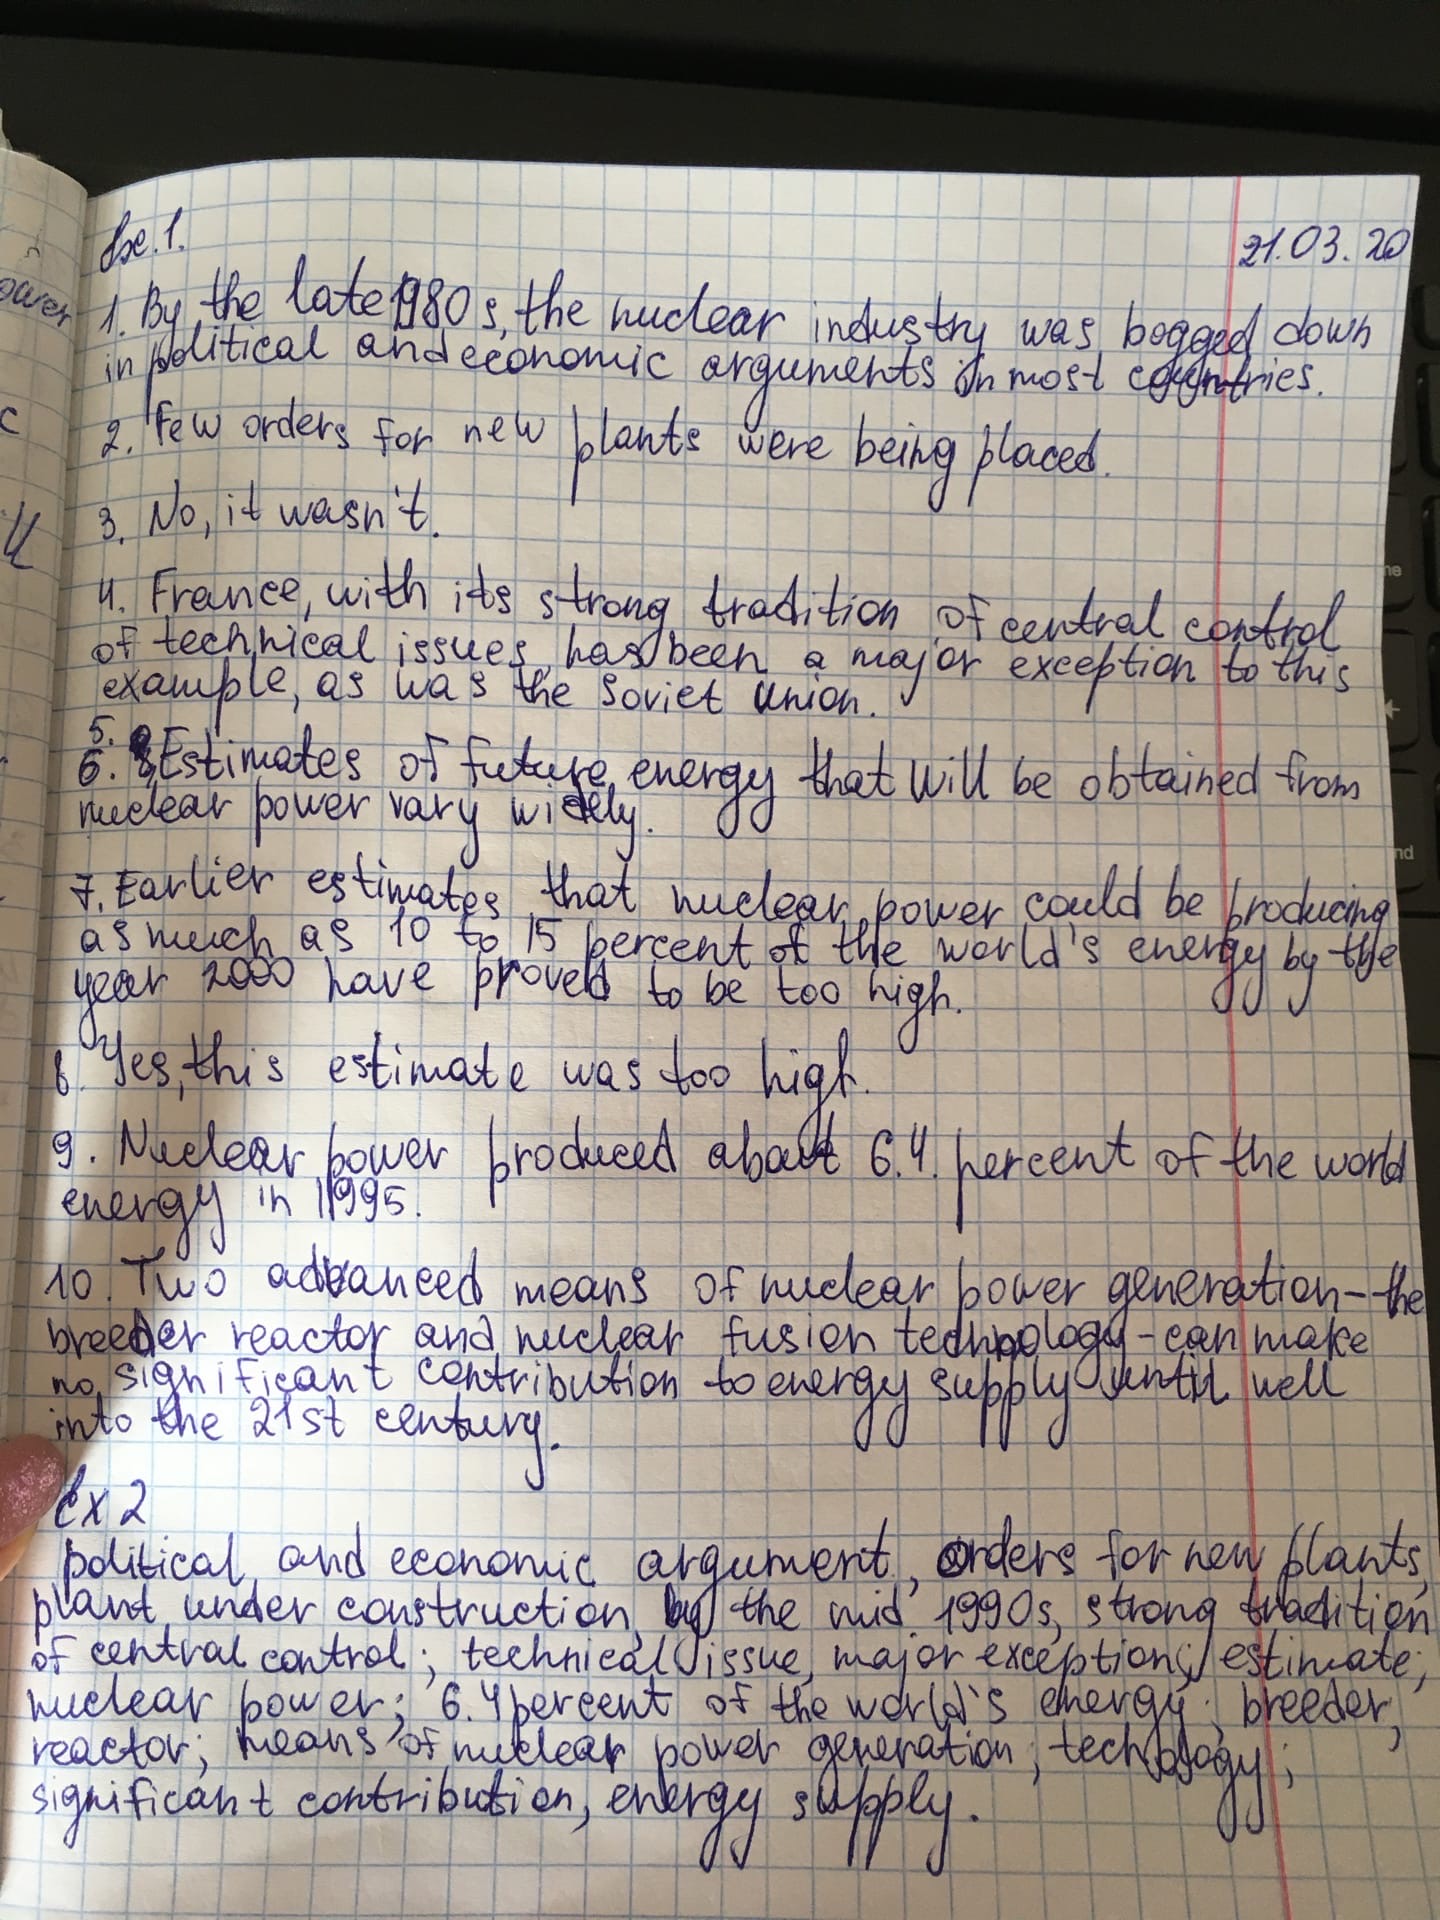 Ex.1.
21.03.20
1. By the late 1980s, the nuclear industry was bogged down
in political and economic arguments in most countries.
2. Few orders for new plants were being placed.
3. No, it wasn't.
4. France, with its strong tradition of central control
of technical issues, has been a major exception to this
example, as was the Soviet Union.
5.
6. Estimates of future energy that will be obtained from
nuclear power vary widely.
7. Earlier estimates that nuclear power could be producing
as much as 10 to 15 percent of the world's energy by the
year 2000 have proved to be too high.
8. Yes, this estimate was too high.
9. Nuclear power produced about 6.4. percent of the world
energy in 1995.
10. Two advanced means of nuclear power generation - the
breeder reactor and nuclear fusion technology - can make
no significant contribution to energy supply until well
into the 21st century.
Ex 2
political and economic argument, orders for new plants,
plant under construction, by the mid 1990s, strong tradition
of central control; technical issue, major exception; estimate;
nuclear power; 6.4 percent of the world's energy; breeder,
reactor; means of nuclear power generation; technology;
significant contribution, energy supply.
ower